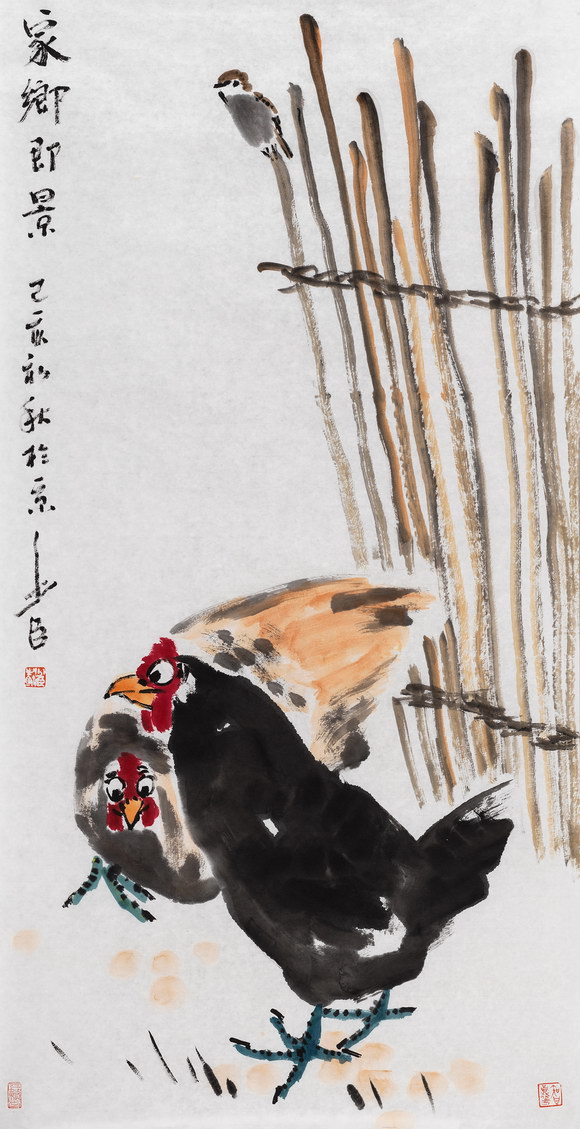 家鄉即景
己亥初秋於京